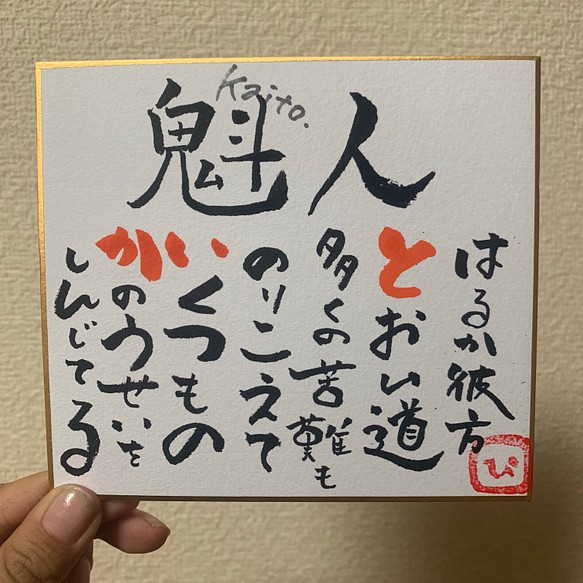 Kaito.
魁人
はるか彼方
とおい道
多くの苦難も
のりこえて
いくつもの
かのうせいを
しんじてる
ぴ